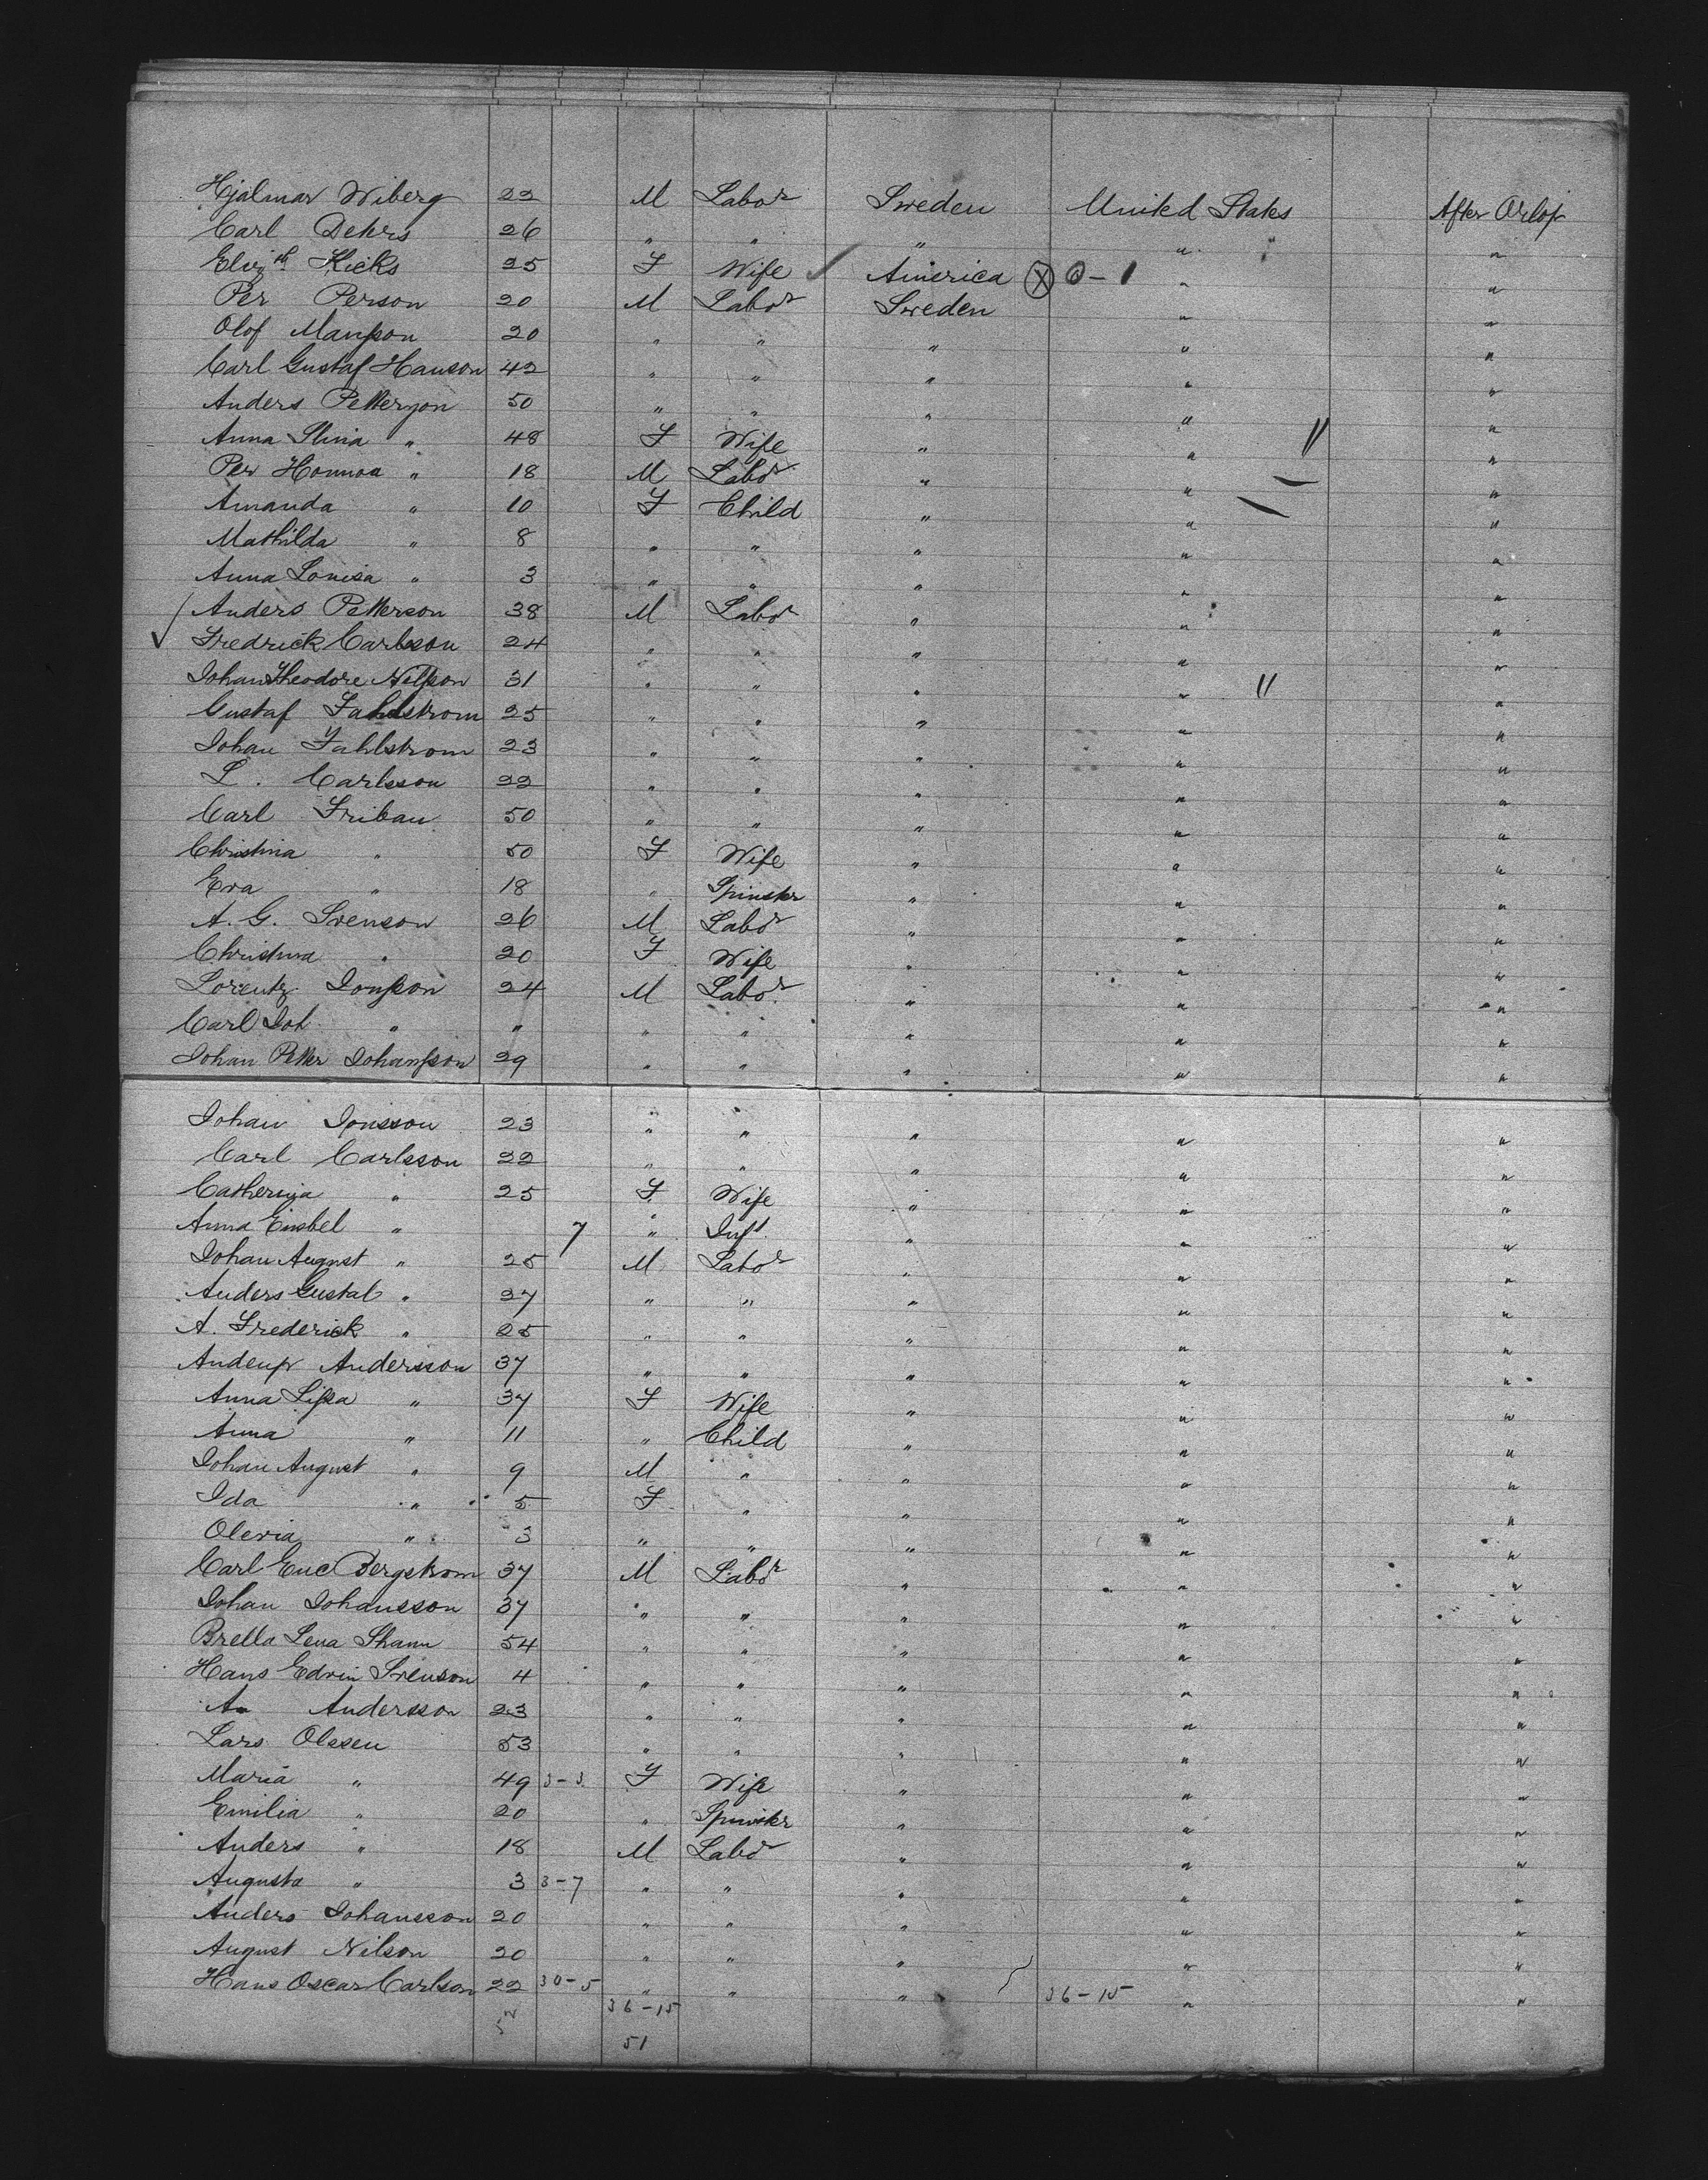 Hjalmar Wiberg 22 M Labor Sweden United States After Orlop
Carl Dehrs 26 " " " " "
Eliz th Hicks 25 F Wife ✓ America X 0 - 1 " "
Per Person 20 M Labor Sweden " "
Olof Manſson 20 " " " " "
Carl Gustaf Hanson 42 " " " " "
Anders Petterson 50 " " " " "
Anna Stina " 48 F Wife " " "
Per " 18 M Labor " " "
Amanda " 10 F Child " " "
Mathilda " 8 " " " " "
Anna Lovisa " 3 " " " " "
Anders Petterson 38 M Labor " " "
✓ Fredrick Carlsson 24 " " " " "
Johan Theodore Nilſson 31 " " " " "
Gustaf Fahlstrom 25 " " " " "
Johan Fahlstrom 23 " " " " "
L. Carlsson 22 " " " " "
Carl Friban 50 " " " " "
Christina " 50 F Wife " " "
Eva " 18 " Spinster " " "
A. G. Svenson 26 M Labor " " "
Christina " 20 F Wife " " "
Lorentz Jonſson 24 M Labor " " "
Carl Joh " " " " " " "
Johan Petter Johanſson 29 " " " " "
Johan Jonsson 23 " " " " "
Carl Carlsson 22 " " " " "
Catherina " 25 F Wife " " "
Anna " 7 " Inft. " " "
Johan August " 25 M Labor " " "
Anders Gustaf " 27 " " " " "
A. Frederick " 25 " " " " "
Andersson 37 " " " " "
Anna Liſsa " 37 F Wife " " "
Anna " 11 " Child " " "
Johan August " 9 M " " " "
Ida " 5 F " " " "
Oleria " 3 " " " " "
Carl Eric Bergstrom 37 M Labor " " "
Johan Johansson 37 " " " " "
Brella Lena 54 " " " " "
Hans Edvin Svenson 4 " " " " "
A Andersson 23 " " " " "
Lars Olssen 53 " " " " "
Maria " 49 3-3 F Wife " " "
Emilia " 20 " Spinster " " "
Anders " 18 M Labor " " "
Augusta " 3 3-7 " " " " "
Anders Johansson 20 " " " " "
August Nilson 20 " " " " "
Hans Oscar Carlson 22 30-5 " " " 36-15 " "
36-15
51